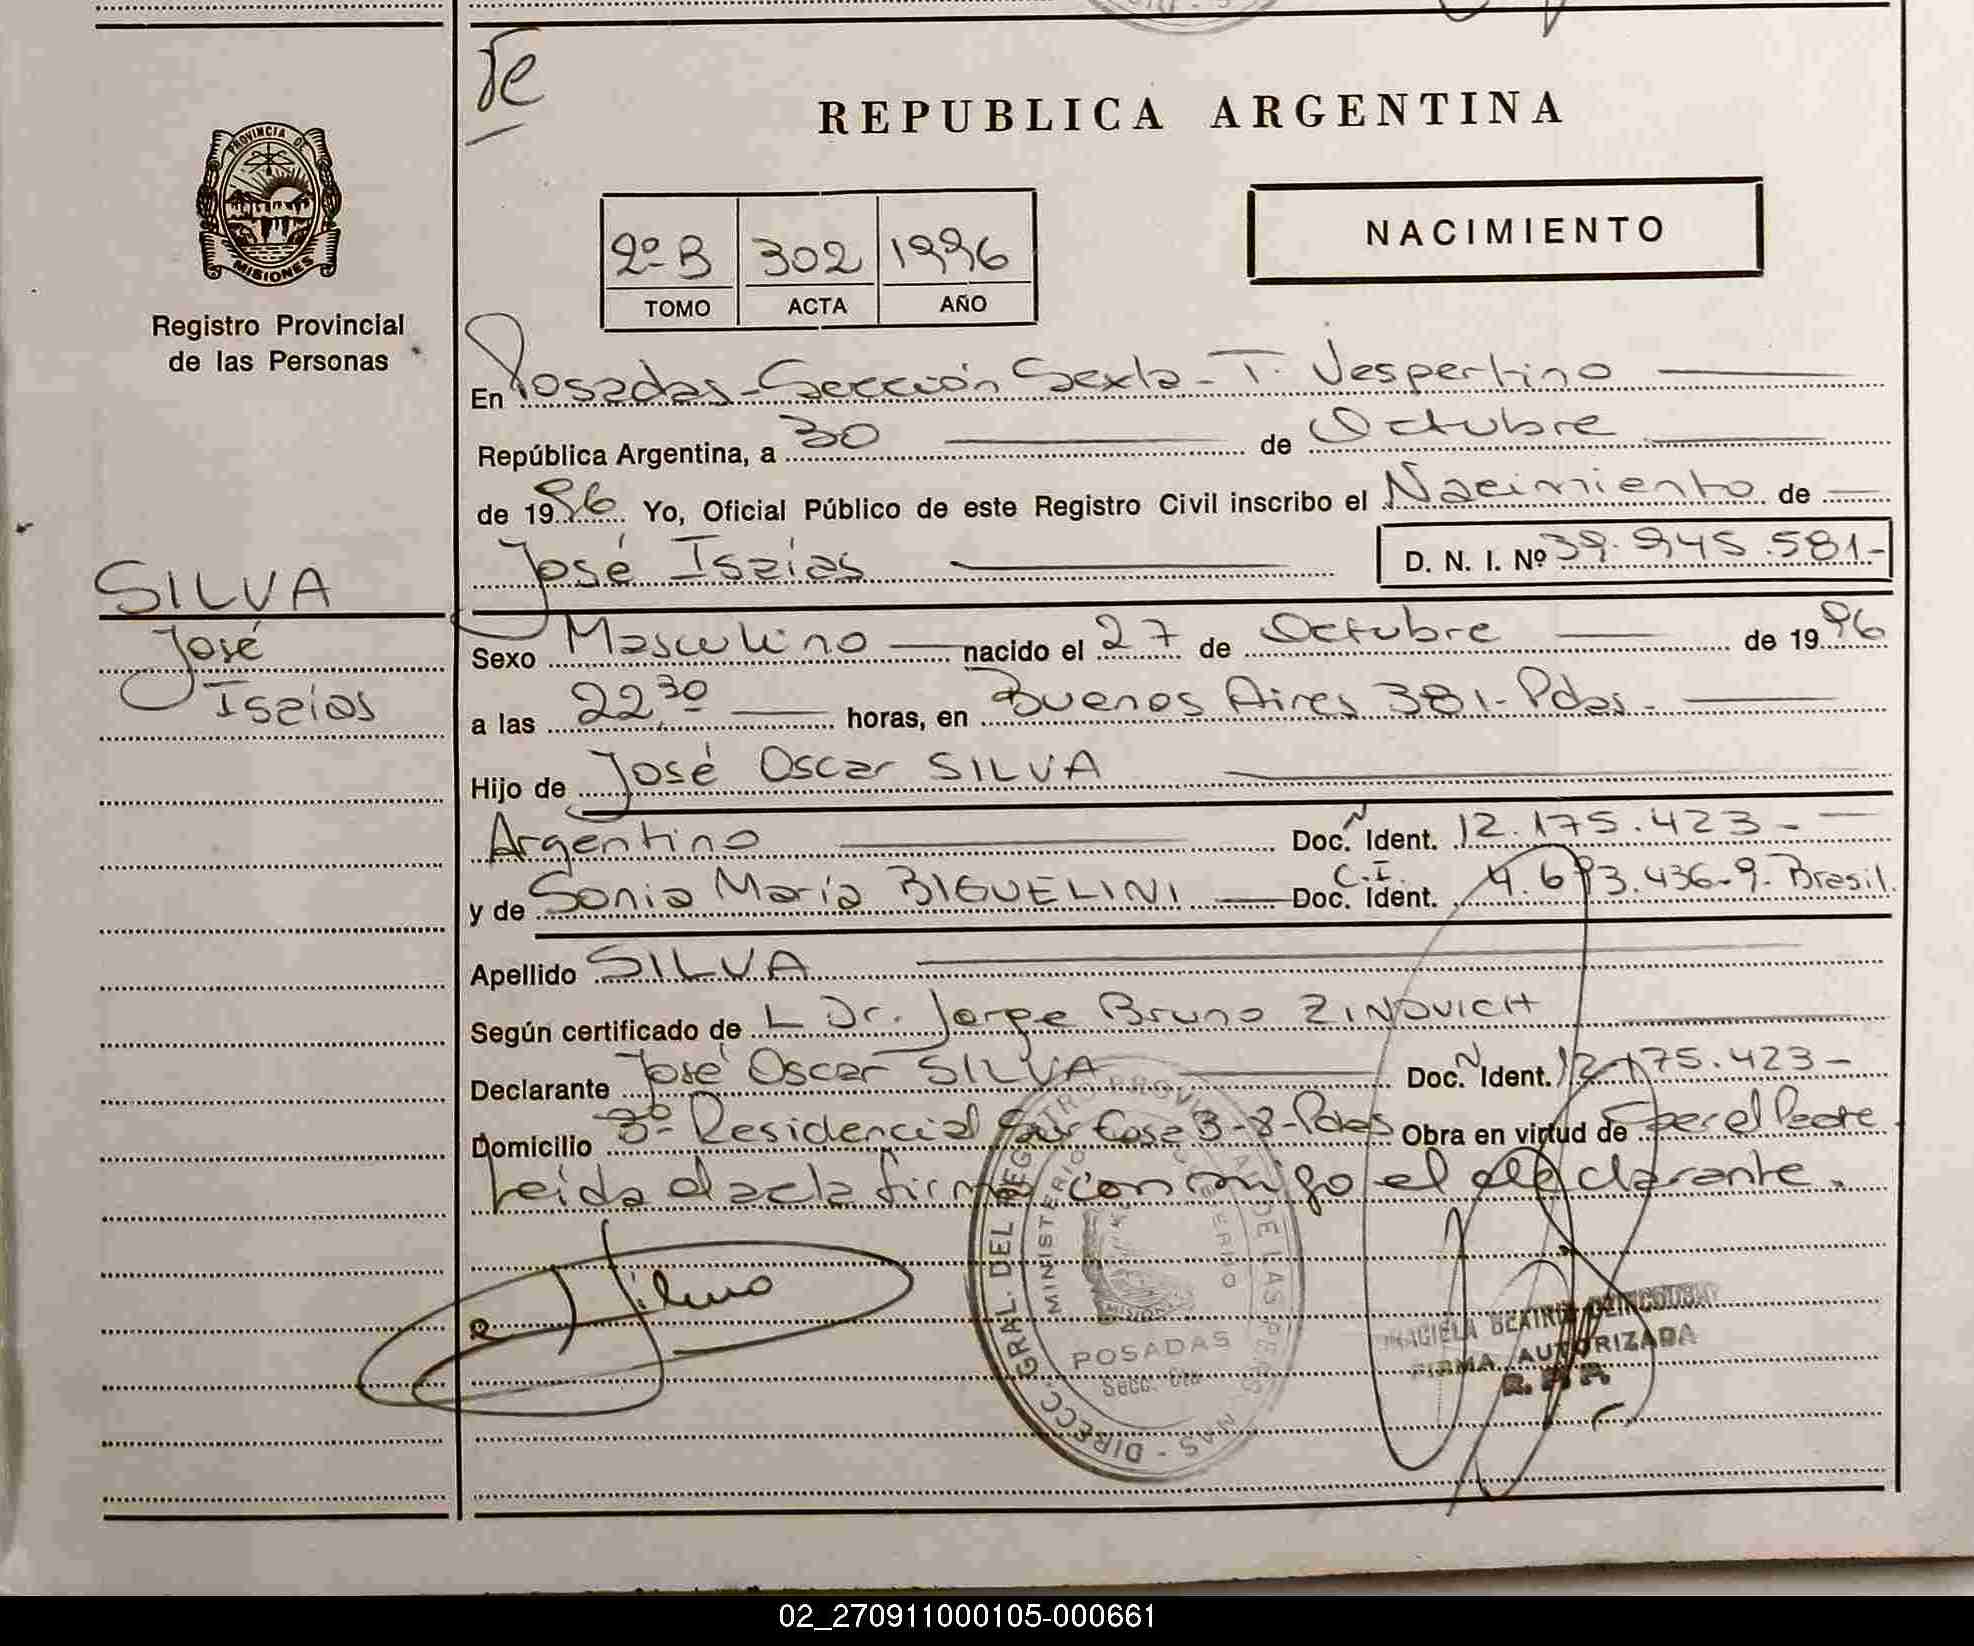 Te
REPUBLICA ARGENTINA
PROVINCIA DE
MISIONES
Registro Provincial
de las Personas
2º B 302 1996
TOMO ACTA AÑO
NACIMIENTO
En Posadas - Sección Sexta - T. Vespertino
República Argentina, a 30 de Octubre
de 1996 Yo, Oficial Público de este Registro Civil inscribo el Nacimiento de
José Isaías D. N. I. Nº 39.945.581-
SILVA
José
Isaías
Sexo Masculino nacido el 27 de Octubre de 1996
a las 22,30 horas, en Buenos Aires 381 - Pdas.
Hijo de José Oscar SILVA
Argentino Doc. N Ident. 12.175.423-
y de Sonia María BIGUELINI Doc. C.I. Ident. 4.693.436-9- Brasil.
Apellido SILVA
Según certificado de L Dr. Jorge Bruno ZINOVICH
Declarante José Oscar SILVA Doc. N Ident. 12.175.423-
Domicilio 3º Residencial Sur Casa 3-8-Pdas Obra en virtud de Ser el Padre
Leída el acta firma conmigo el declarante.
Silva
DIRECC. GRAL. DEL REGISTRO PROVINCIAL DE LAS PERSONAS
MINISTERIO DE GOBIERNO
MISIONES
POSADAS
Secc. 6ta
BEATRIZ
FIRMA AUTORIZADA
R. P. P.
02_270911000105-000661